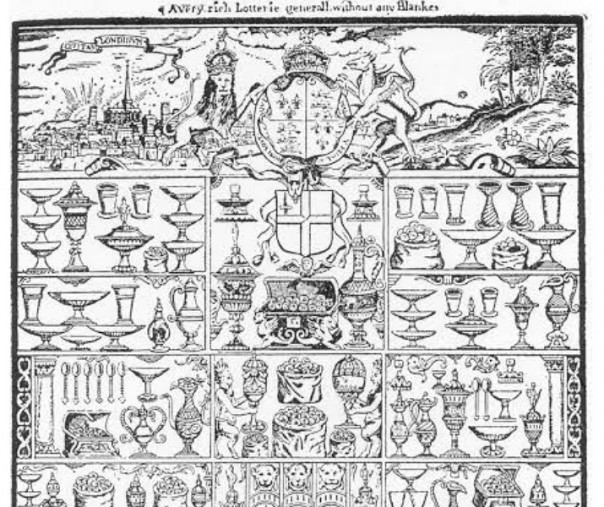 A very rich Lotterie generall, without any Blankes
CIVITAS LONDINVM